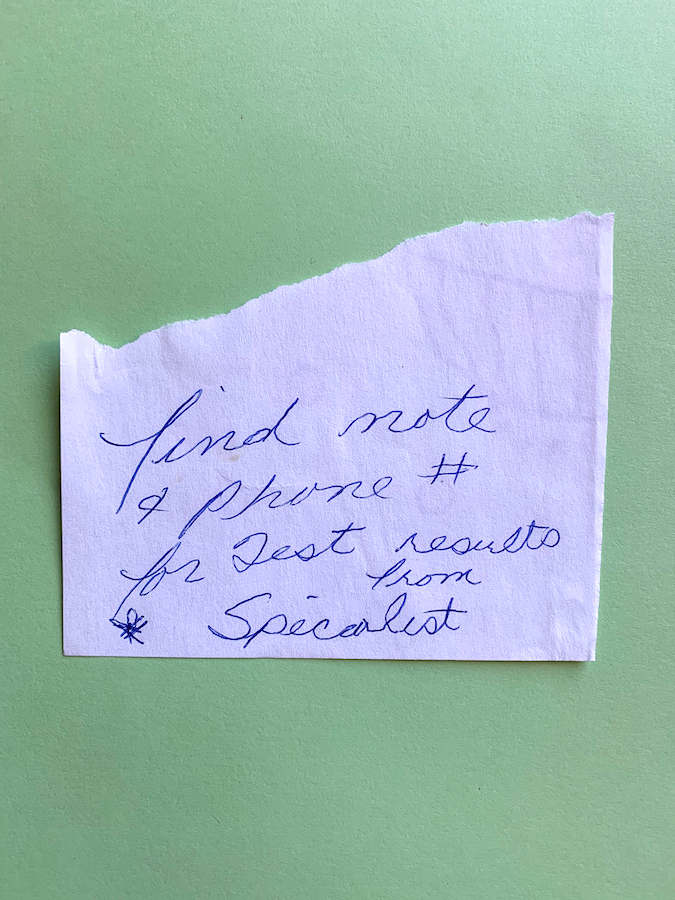 find note
& phone #
for Test results
from
* Specialist